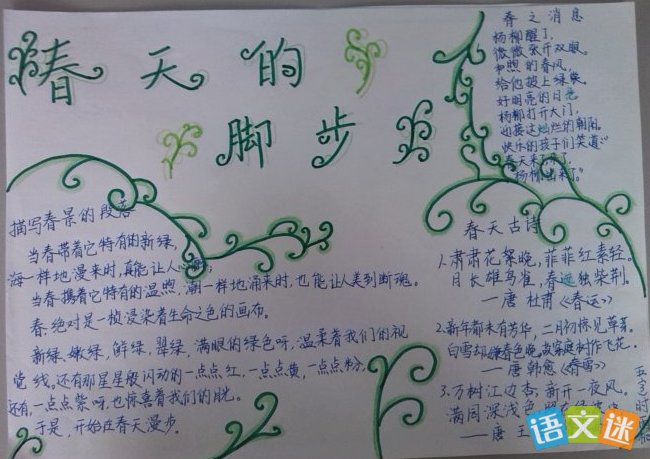 春天的
脚步
描写春景的段落
当春带着它特有的新绿,
海一样地漫来时,真能让人心醉;
当春携着它特有的温煦,潮一样地涌来时,也能让人美到断魂。
春,绝对是一桢浸染着生命之色的画布。
新绿、嫩绿、鲜绿、翠绿,满眼的绿色呀,温柔着我们的视
觉线。还有那星星般闪动的一点点红,一点点黄,一点点粉,
还有,一点点紫呀,也惊喜着我们的
于是,开始在春天漫步。
春之消息
杨柳醒了,
微微张开双眼。
和煦的春风,
给他披上绿
好明亮的日光
杨柳打开大门,
迎接这灿烂的朝阳。
快乐的孩子们笑道:
春天来了,来了,
杨柳出来了。"
春天古诗
1.肃肃花絮晚,菲菲红素轻。
日长雄鸟雀,春远独柴荆。
—唐 杜甫《春运》
2.新年都未有芳华,二月初惊见草芽。
白雪却嫌春色晚,故穿庭树作飞花。
—唐 韩愈《春雪》
3.万树江边杏,新开一夜风。
满园深浅色,照在绿
—唐 王
语文迷